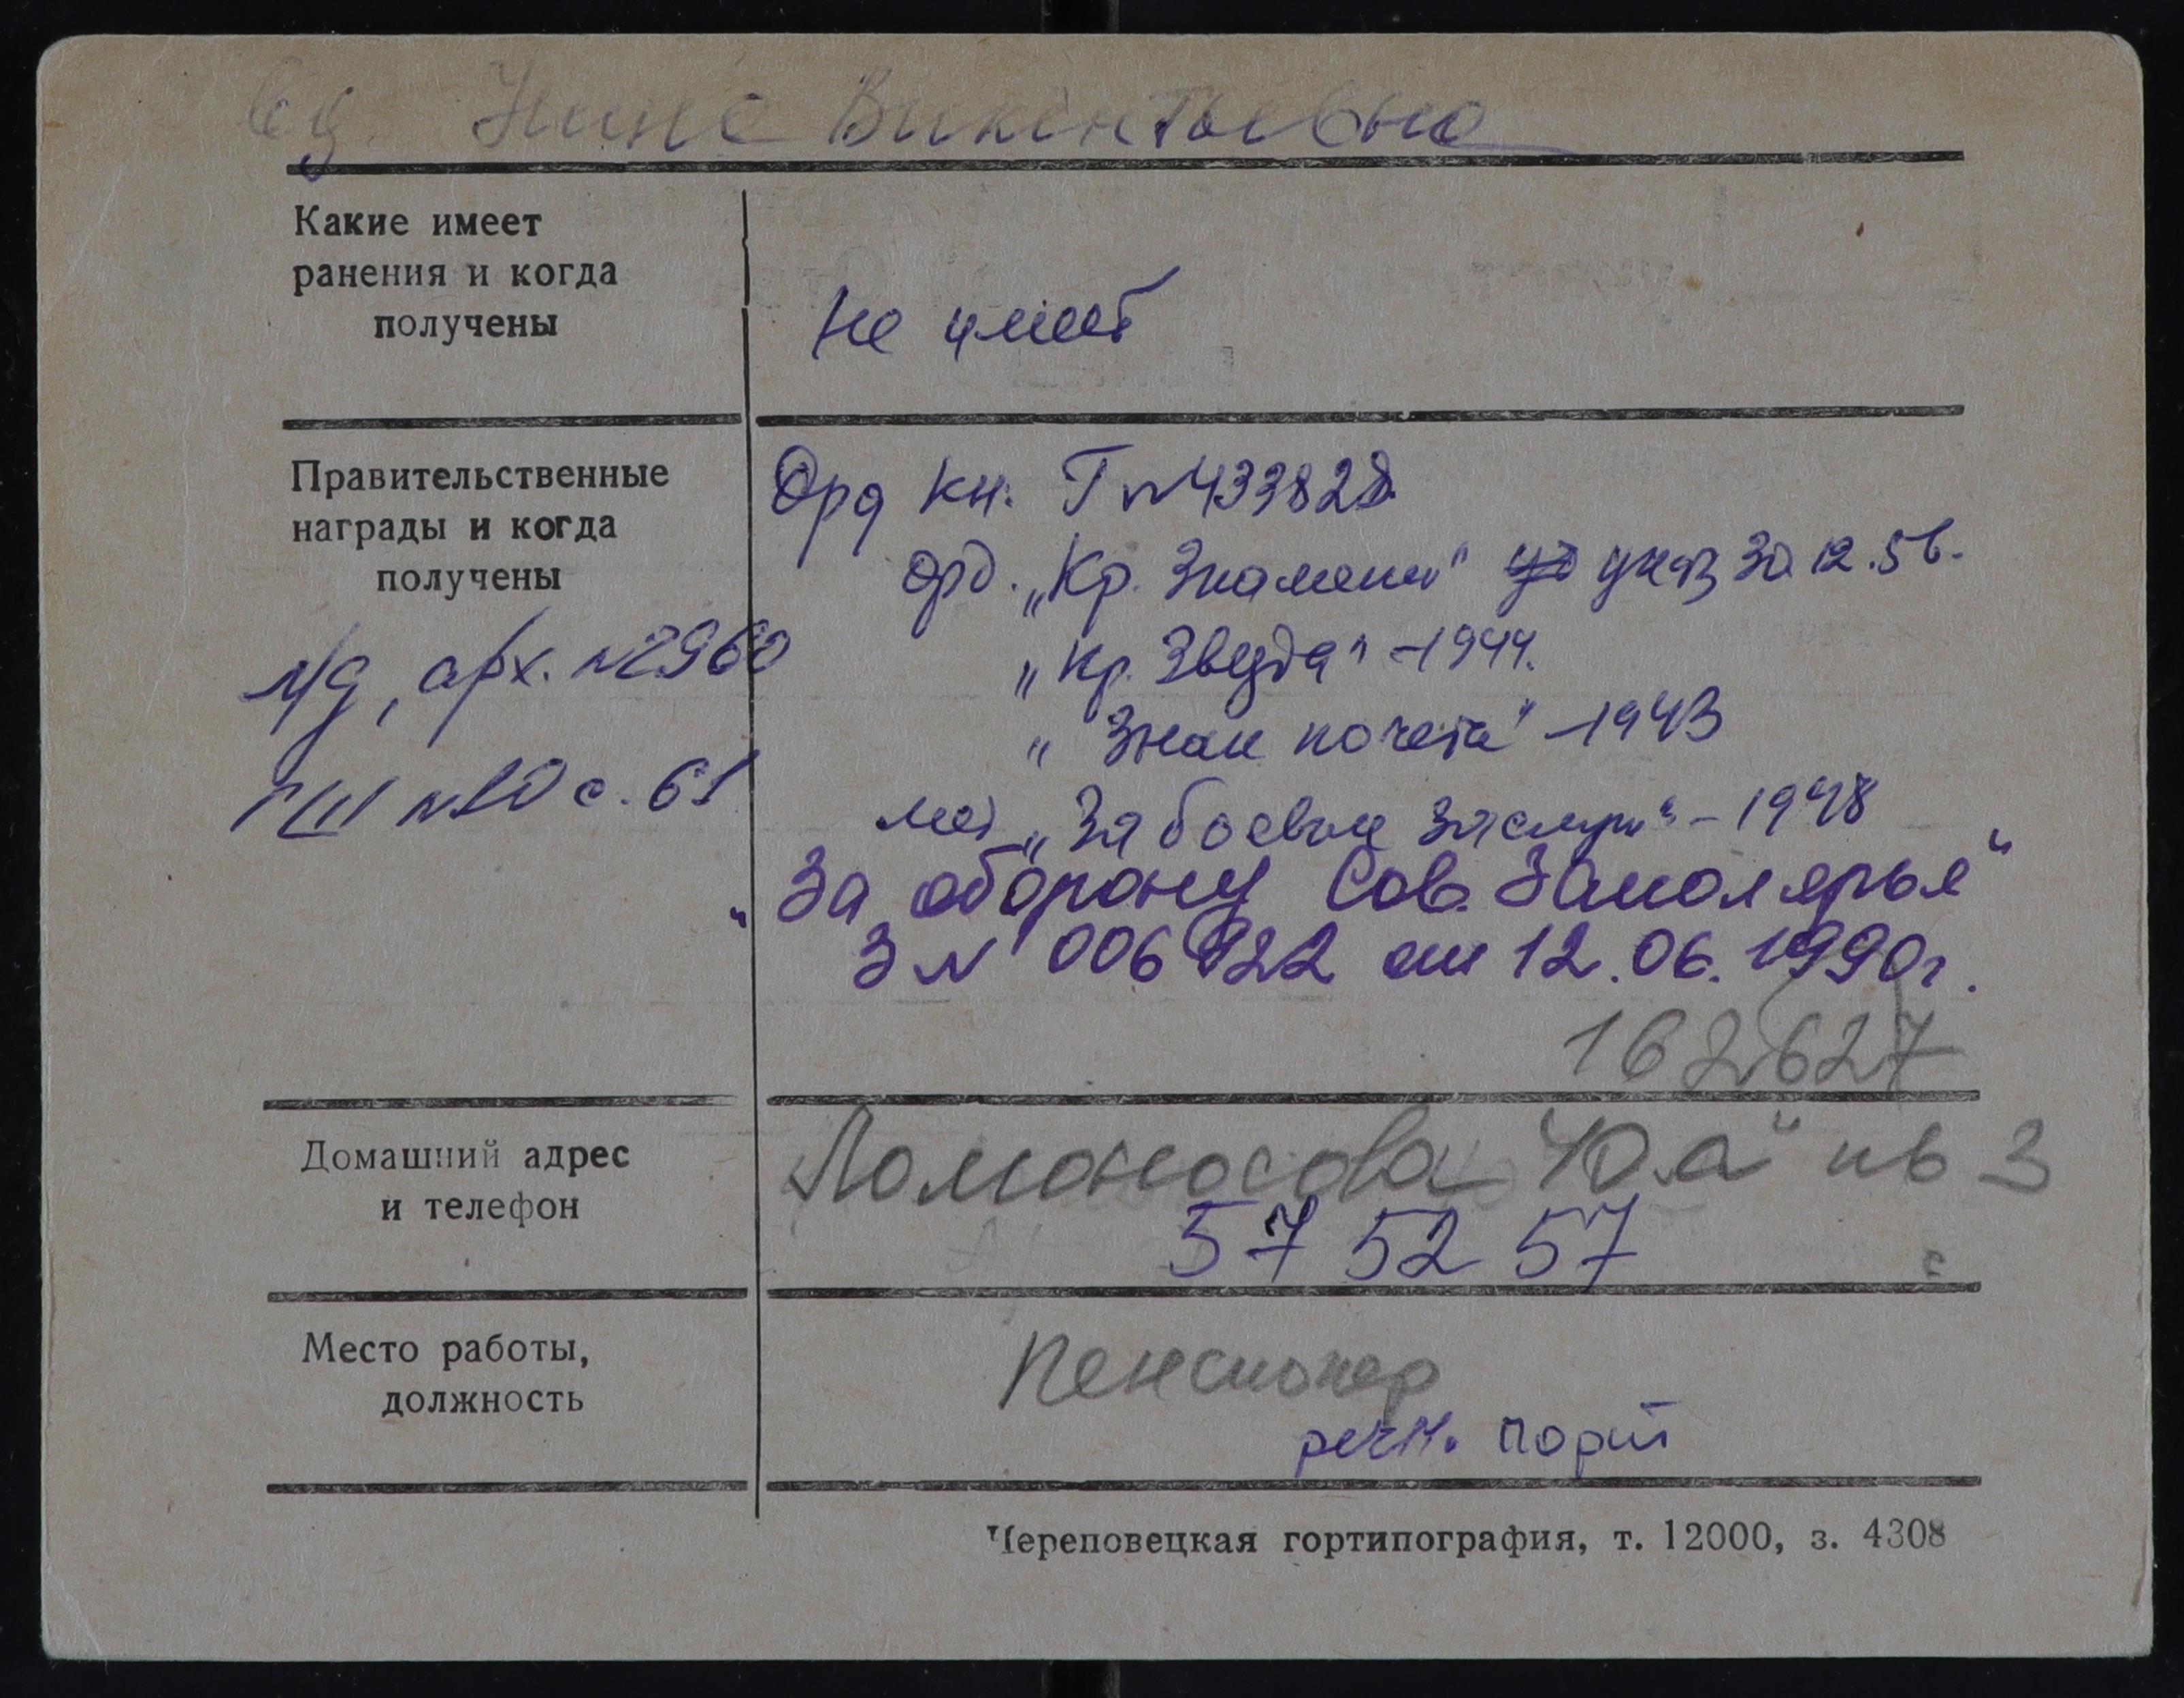 вд. Нина Викентьевна
Какие имеет
ранения и когда
получены
Не имеет
Правительственные
награды и когда
получены
Орд Кн. Г №433828
орд. „Кр. Знамени" указ 30.12.56.
„Кр. Звезда" - 1944.
„Знак почета" - 1943
мед „За боевые заслуги" - 1948
„За оборону Сов. Заполярья"
З № 006922 от 12.06.1990г.
л/д, арх. №2960
№10 с. 61
162627
Домашний адрес
и телефон
Ломоносова 40 „а" кв 3
57 52 57
Место работы,
должность
Пенсионер
речн. порт
Череповецкая гортипография, т. 12000, з. 4308